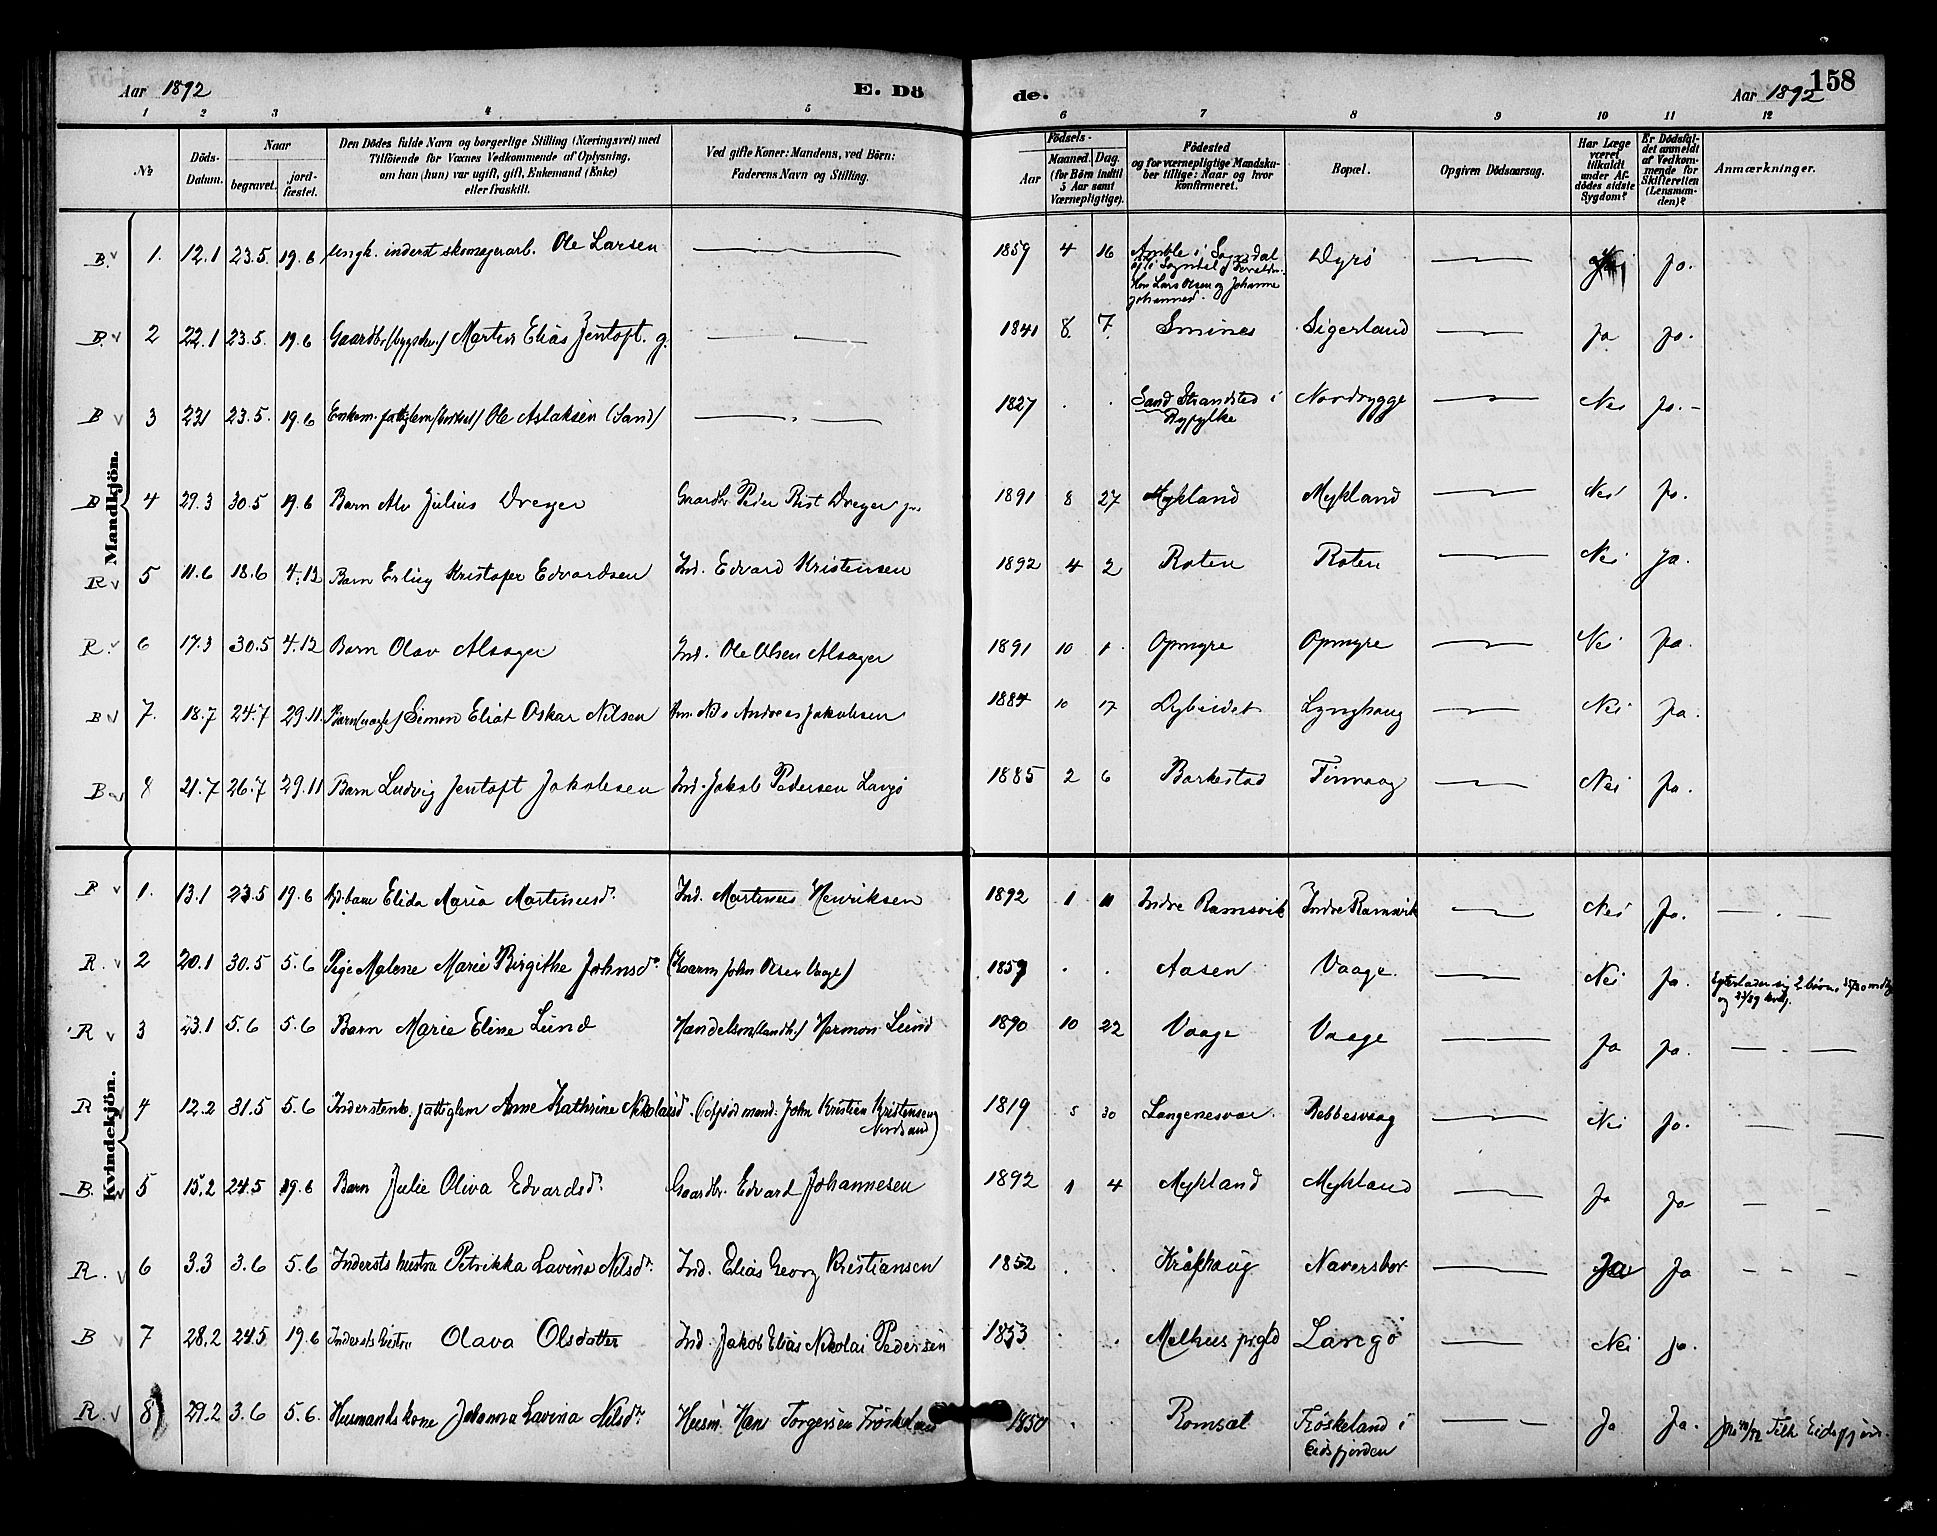 Aar 1892
E. Dö
de.
Aar 1892
158
1 2 3 4 5 6 7 8 9 10 11 12
№
Döds-
Datum.
Naar
begravet.
jord-
fæstet.
Den Dödes fulde Navn og borgerlige Stilling (Næringsvei) med
Tilföiende for Voxnes Vedkommende af Oplysning,
om han (hun) var ugift, gift, Enkemand (Enke)
eller fraskilt.
Ved gifte Koner: Mandens, ved Börn:
Faderens Navn og Stilling.
Födsels-
Aar
Maaned. Dag.
(for Börn indtil
5 Aar samt
Værnepligtige).
Födested
og for værnepligtige Mandska-
ber tillige: Naar og hvor
konfirmeret.
Bopæl.
Opgiven Dödsaarsag.
Har Læge
været
tilkaldt
under Af-
dödes sidste
Sygdom?
Er Dödsfal-
det anmeldt
af Vedkom-
mende for
Skifteretten
(Lensman-
den)?
Anmærkninger.
Mandkjön.
B. 1. 12.1 23.5. 19.6 Ungk. inderst skomagerarb. Ole Larsen 1859 4 16 Amble i Sogndal Dyrö Ja.
Lars Olsen og Johanne
B. 2 22.1 23.5. 19.6 Gaardbr. Martin Elias Jentoft. g. 1841 8. 7. Smines Sigerland Ja Ja.
B 3 22.1 23.5. 19.6 Enkem. Ole Aslaksen (Sand) 1827 Sand Strandsted i Nordrygge Nei Ja.
Ryfylke
B 4 29.3 30.5 19.6 Barn Alv Julius Dreyer Gaardbr Peder Rist Dreyer 1891 8 27 Mykland Mykland Nei Ja.
R 5 11.6 18.6 4.12 Barn Erling Kristofer Edvardsen Ind. Edvard Kristensen 1892 4 2 Roten Roten Nei Ja.
R. 6 17.3 30.5 4.12 Barn Olav Alsager Ind. Ole Olsen Alsager 1891 10 1 Opmyre Opmyre Nei Ja.
B 7. 18.7 24.7 29.11. Barn Simon Eliot Oskar Nilsen Nils Andreas Jakobsen 1884 10 17 Dybeidet Lynghaug Nei Ja.
B 8 21.7 26.7 29.11 Barn Ludvig Jentoft Jakobsen Ind. Jakob Pedersen Langö 1885 2 6 Barkestad Finvaag Nei Ja.
Kvindekjön.
B 1. 13.1 23.5 19.6 Elida Maria Martinusd. Ind. Martinus Henriksen 1892 1 11 Indre Ramsvik Indre Ramsvik Nei Ja.
R. 2 20.1 30.5 5.6 Pige Malene Marie Birgithe Johnsd. John Olsen Vaage) 1859 Aasen Vaage Nei Ja. Efterlader sig 2 börn,
R 3 23.1 5.6 5.6 Barn Marie Eline Lund Handelsm (landh.) Hermon Lund 1890 10 22 Vaage Vaage Ja Ja.
R 4 12.2 31.5 5.6 Anne Kathrine Nikolaisd. John Kristian Kristensen 1819 5 30 Langenesvær Nei Ja.
Nordsand)
B. 5 15.2 24.5 19.6 Barn Julie Oliva Edvardsd. Gaardbr. Edvard Johannesen 1892 1 4 Mykland Mykland Ja Ja
R. 6 3.3 3.6 5.6 Indersts hustru Petrikka Lavina Nilsd. Ind. Elias Georg Kristiansen 1852 Kråkhaug Naversbor Ja Ja
B 7 28.2 24.5 19.6 Indersts hustru Olava Olsdatter Ind. Jakob Elias Nikolai Pedersen 1853 Melhus prgld Langö Nei Ja.
R. 8 29.2 3.6 5.6. Husmands kone Johanna Lavina Nilsd. Husm. Hans Torgersen 1850 Romsæt Fröskeland i Ja Ja. Eidsfjord.
Eidsfjorden